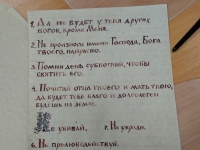 1. Да не будет у тебя других
богов, кроме Меня.
2. Не произноси имени Господа, Бога
твоего, напрасно.
3. Помни день субботний, чтобы
святить его.
4. Почитай отца твоего и мать твою,
да будет тебе благо и долголетен
будешь на земле.
Не убивай. 7. Не укради.
6. Не прелюбодействуй.